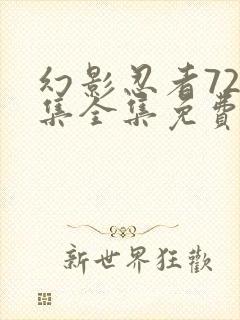 幻影忍者72
集全集免費
新世界狂歡